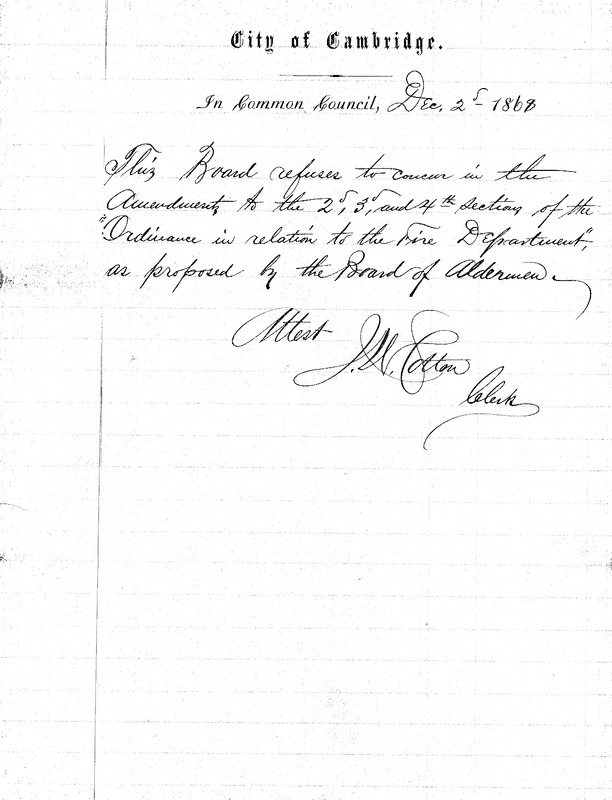 City of Cambridge.
In Common Council, Dec. 2d 1868
This Board refuses to concur in the
Amendments to the 2d, 3d, and 4th sections of the
"Ordinance in relation to the Fire Department",
as proposed by the Board of Aldermen.
Attest J. W. Cotton
Clerk